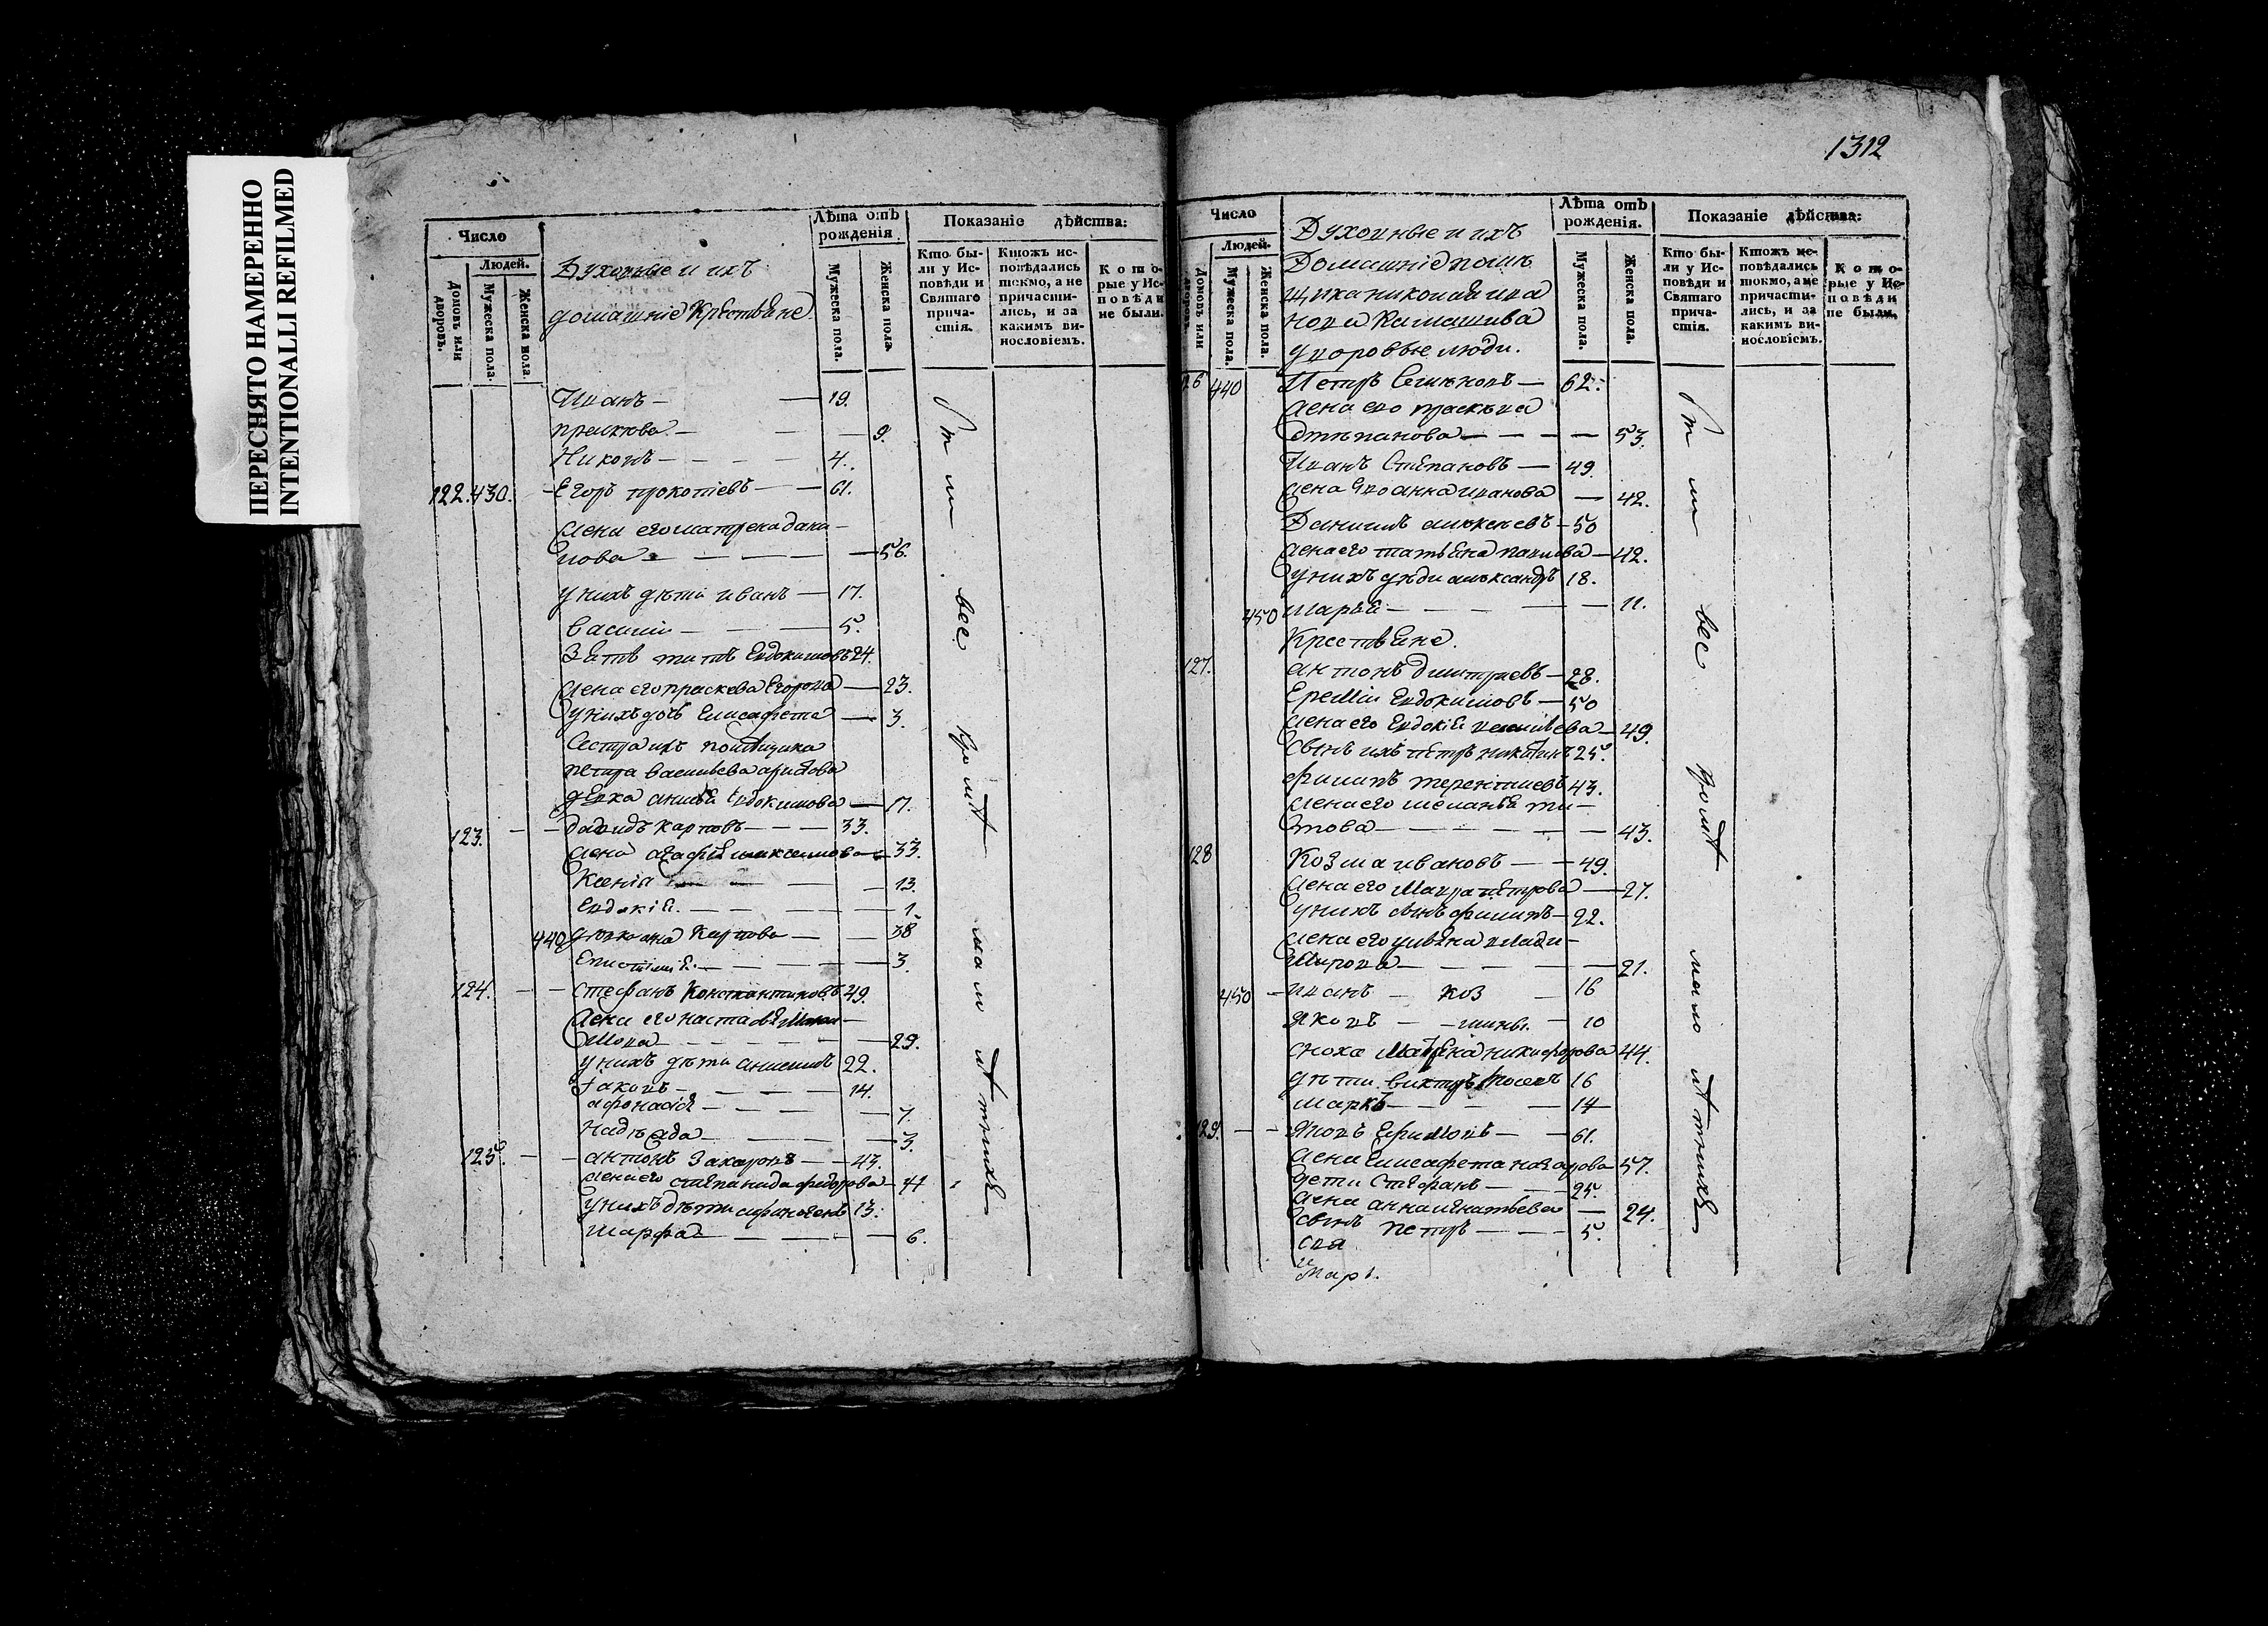 ПЕРЕСНЯТО НАМЕРЕННО
INTENTIONALLI REFILMED
Число
Людей.
Домовъ или дворовъ.
Мужеска пола.
Женска пола.
Духовные и ихъ
домашніе Крестьяне
Лѣта отъ рожденія.
Мужеска пола.
Женска пола.
Показаніе дѣйства:
Кто были у Исповѣди и Святаго причастія.
Ктожъ исповѣдались токмо, а не причастились, и за какимъ винословіемъ.
Которые у Исповѣди не были.
Иванъ — 19.
прасковья — 9.
Никонъ — 4.
122. 430. Егоръ прокопіевъ — 61.
жена его матрена дани-
лова — 56.
у нихъ дѣти иванъ — 17.
василій — 5.
Зять титъ Евдокимовъ 24.
жена его праскева Егорова — 23.
у нихъ дочь Елисафета — 3.
Сестра ихъ помѣщика
петра васильева
девка анисья Евдокимова — 17.
123. давидъ карповъ — 33.
жена агафья максимова — 33.
Ксенія — 13.
Евдокія — 1.
440 карпова — 38
3.
124. стефанъ Константиновъ 49.
жена его настасья
29.
у нихъ дѣти анисимъ 22.
Іаковъ — 14.
афонасія — 7.
надежда — 3.
125. антонъ Захаровъ — 43.
жена его степанида федорова — 41
у нихъ дѣти афиногенъ 13.
марфа — 6.
вес кромѣ мал лѣтнихъ
1312
Число
Людей.
Домовъ или дворовъ.
Мужеска пола.
Женска пола.
Духовные и ихъ
Домашніе помѣ
щика николая ива
нова
дворовые люди.
Лѣта отъ рожденія.
Мужеска пола.
Женска пола.
Показаніе дѣйства:
Кто были у Исповѣди и Святаго причастія.
Ктожъ исповѣдались токмо, а не причастились, и за какимъ винословіемъ.
Которые у Исповѣди не были.
126 440 Петръ Семеновъ — 62.
жена его праскева
степанова — 53.
Иванъ Степановъ — 49.
жена его анна иванова — 42.
Даниилъ алексеевъ — 50
жена его татьяна павлова — 42.
у нихъ дѣти александръ 18.
450 марья — 11.
Крестьяне.
127. антонъ дмитріевъ — 28.
Еремій Евдокимовъ — 50
жена его Евдокія — 49.
Сынъ ихъ петръ никитинъ 25.
филипъ терентиевъ 43.
жена его меланья ти-
това — 43.
128 Козма ивановъ — 49.
жена его Мавра петрова — 27.
у нихъ сынъ филипъ — 22.
жена его ульяна влади-
мирова — 21.
450 иванъ — коз — 16
яковъ — мины — 10
сноха Матрена никифорова 44.
дѣти викторъ 16
маркъ — 14
129. яковъ Ефимовъ — 61.
жена Елисафета назарова 57.
дети Стефанъ — 25.
жена анна игнатьева — 24.
сынъ петръ — 5.
вес кромѣ мало лѣтнихъ